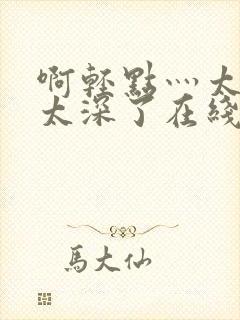 啊輕點灬太
太深了在綫
馬大仙